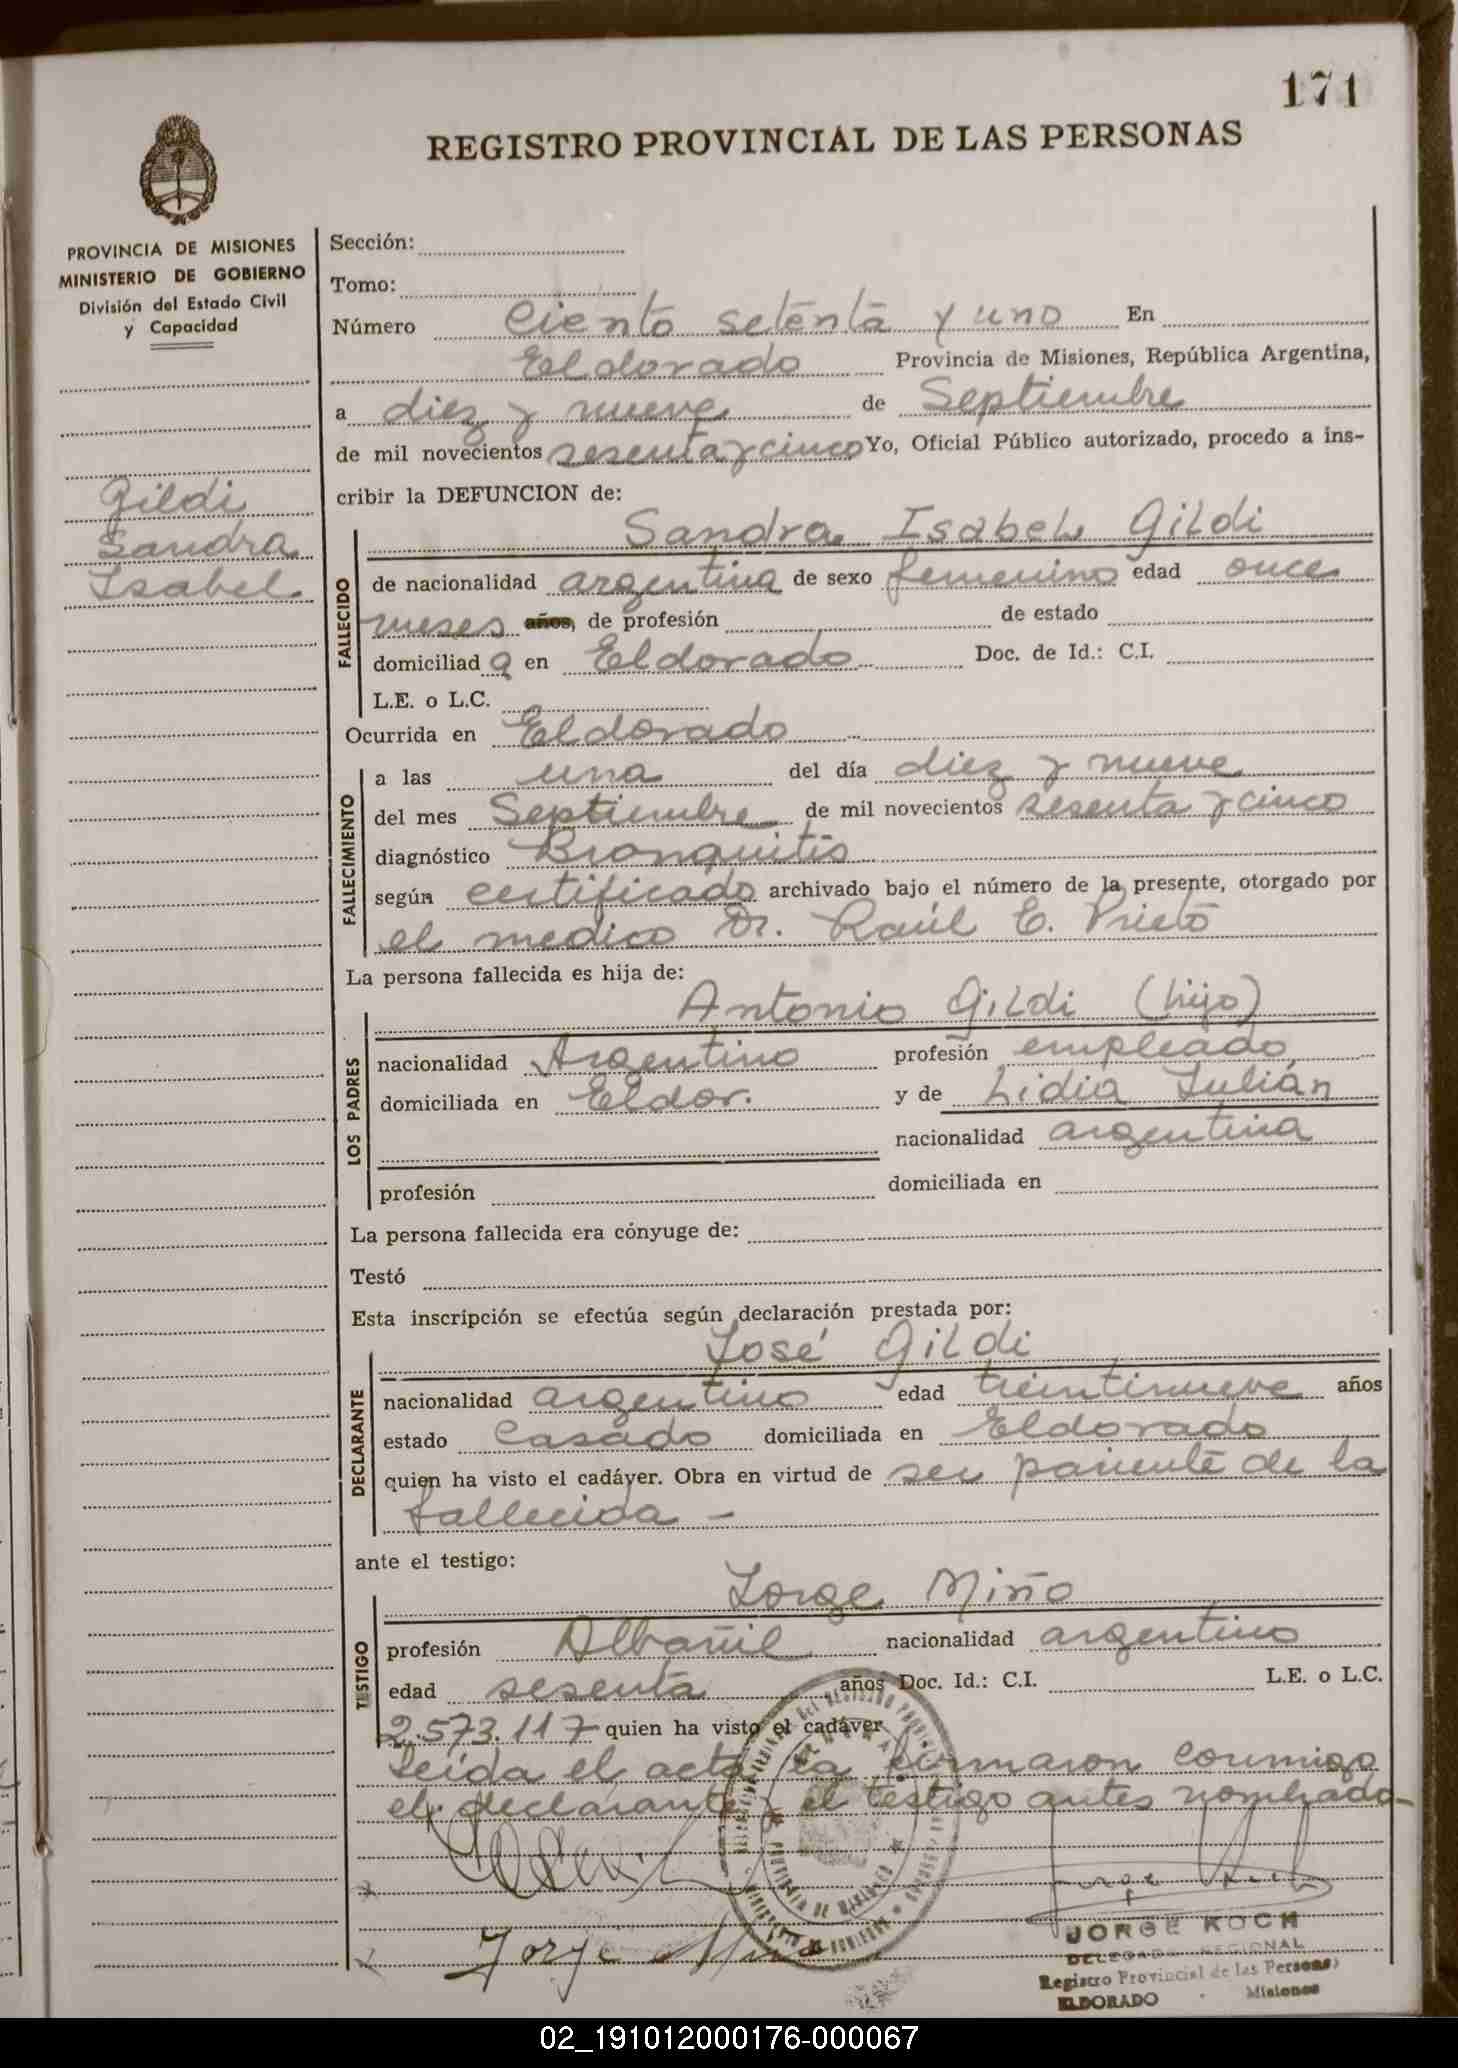 171
REGISTRO PROVINCIAL DE LAS PERSONAS
PROVINCIA DE MISIONES
MINISTERIO DE GOBIERNO
División del Estado Civil
y Capacidad
Gildi
Sandra
Isabel
Sección:
Tomo:
Número Ciento setenta y uno En
Eldorado Provincia de Misiones, República Argentina,
a diez y nueve de Septiembre
de mil novecientos sesenta y cinco Yo, Oficial Público autorizado, procedo a ins-
cribir la DEFUNCION de:
FALLECIDO
Sandra Isabel Gildi
de nacionalidad argentina de sexo femenino edad once
meses años, de profesión de estado
domiciliad a en Eldorado Doc. de Id.: C.I.
L.E. o L.C.
Ocurrida en Eldorado
FALLECIMIENTO
a las una del día diez y nueve
del mes Septiembre de mil novecientos sesenta y cinco
diagnóstico Bronquitis
según certificado archivado bajo el número de la presente, otorgado por
el medico Dr. Raúl E. Prieto
La persona fallecida es hija de:
LOS PADRES
Antonio Gildi (hijo)
nacionalidad Argentino profesión empleado
domiciliada en Eldor. y de Lidia Julián
nacionalidad argentina
profesión domiciliada en
La persona fallecida era cónyuge de:
Testó
Esta inscripción se efectúa según declaración prestada por:
DECLARANTE
José Gildi
nacionalidad argentino edad treintinueve años
estado Casado domiciliada en Eldorado
quien ha visto el cadáver. Obra en virtud de ser pariente de la
fallecida -
ante el testigo:
TESTIGO
Jorge Miño
profesión Albañil nacionalidad argentino
edad sesenta años Doc. Id.: C.I. L.E. o L.C.
2.573.117 quien ha visto el cadáver
Leída el acta la firmaron conmigo
el declarante y el testigo antes nombrado-
Jorge Miño
JORGE KOCH
DELEGADO REGIONAL
Registro Provincial de las Personas
ELDORADO Misiones
PROVINCIA DE MISIONES
02_191012000176-000067